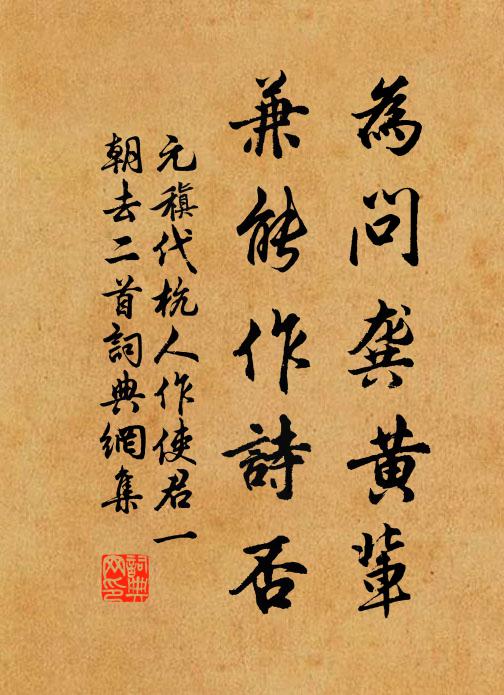 為問龔黃輩
兼能作詩否
元稹代杭人作使君一
朝去二首詞典網集
詞典
网印